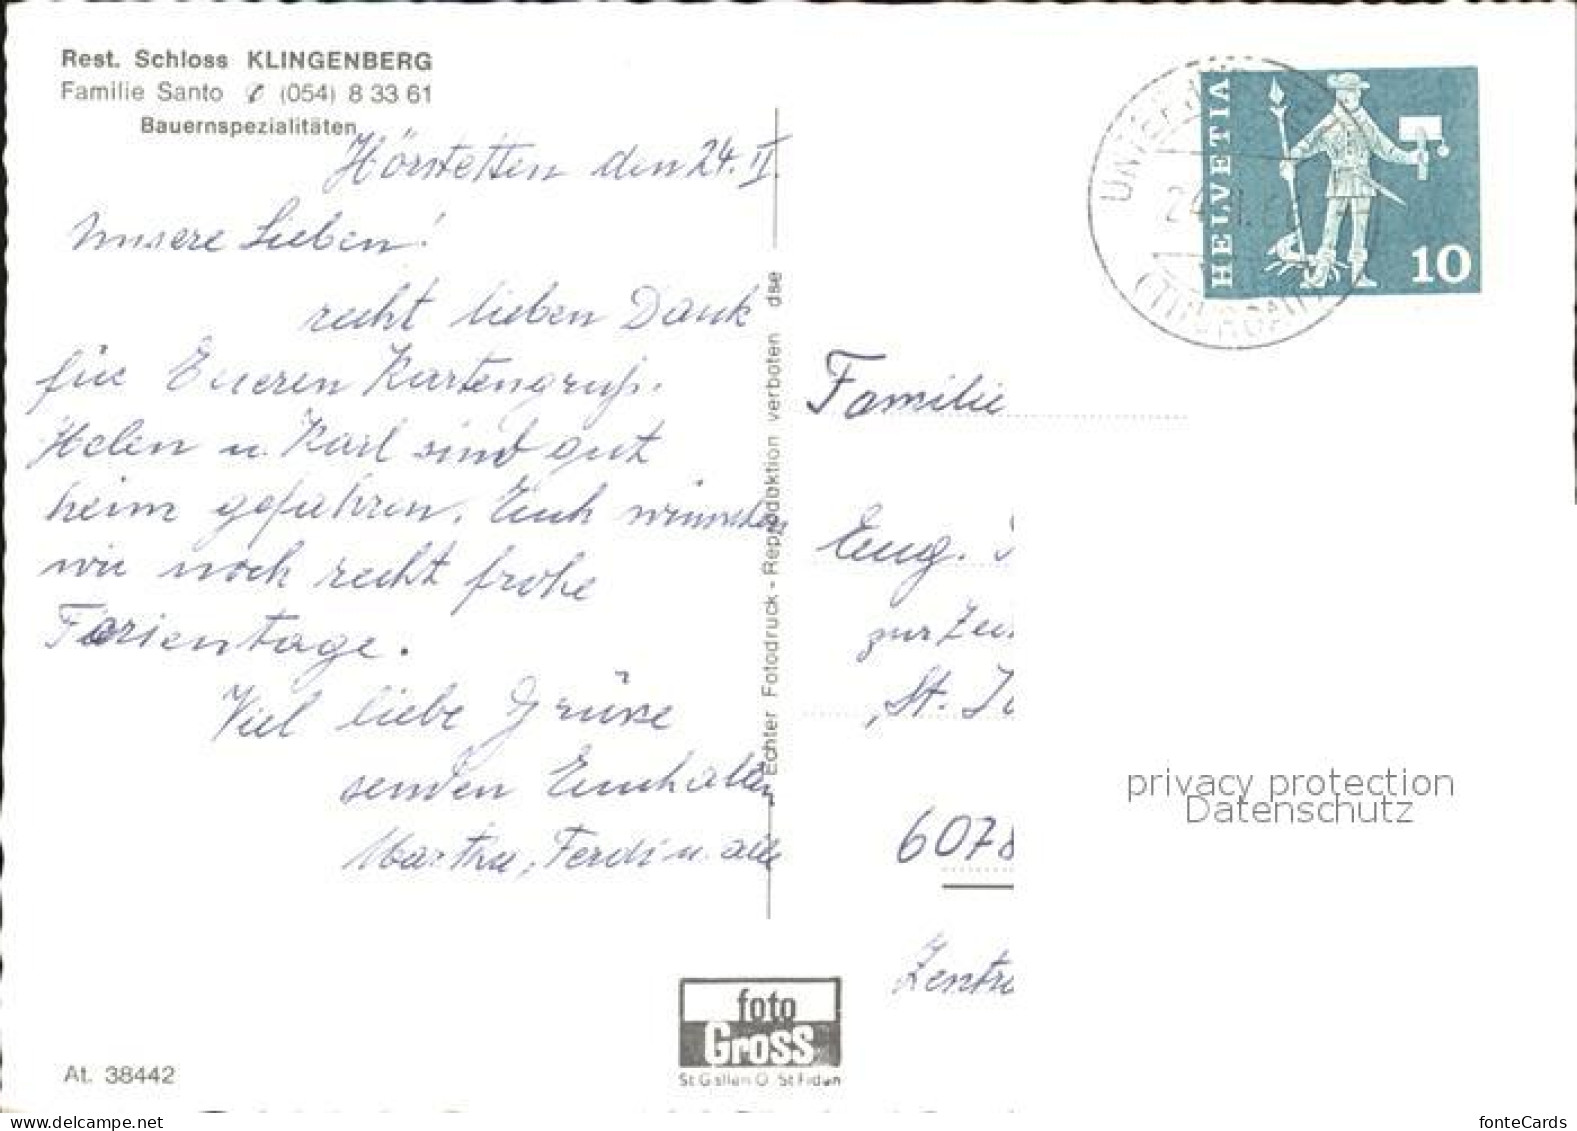 Rest. Schloss KLINGENBERG
Familie Santo (054) 8 33 61
Bauernspezialitäten
Hörstetten den 24. II.
Unsere Lieben!
recht lieben Dank
für Eueren Kartengruß.
Helen u. Karl sind gut
heim gefahren. Euch wünschen
wir noch recht frohe
Ferientage.
Viel liebe Grüsse
senden Euch allen
Martha, Ferdi u. alle
Echter Fotodruck - Reproduktion verboten dse
HELVETIA
10
Familie
Eug.
zur
St.
6078
privacy protection
Datenschutz
foto
Gross
St Gallen O St Fiden
At. 38442
www.ansichtskartenversand.com
fonteCards